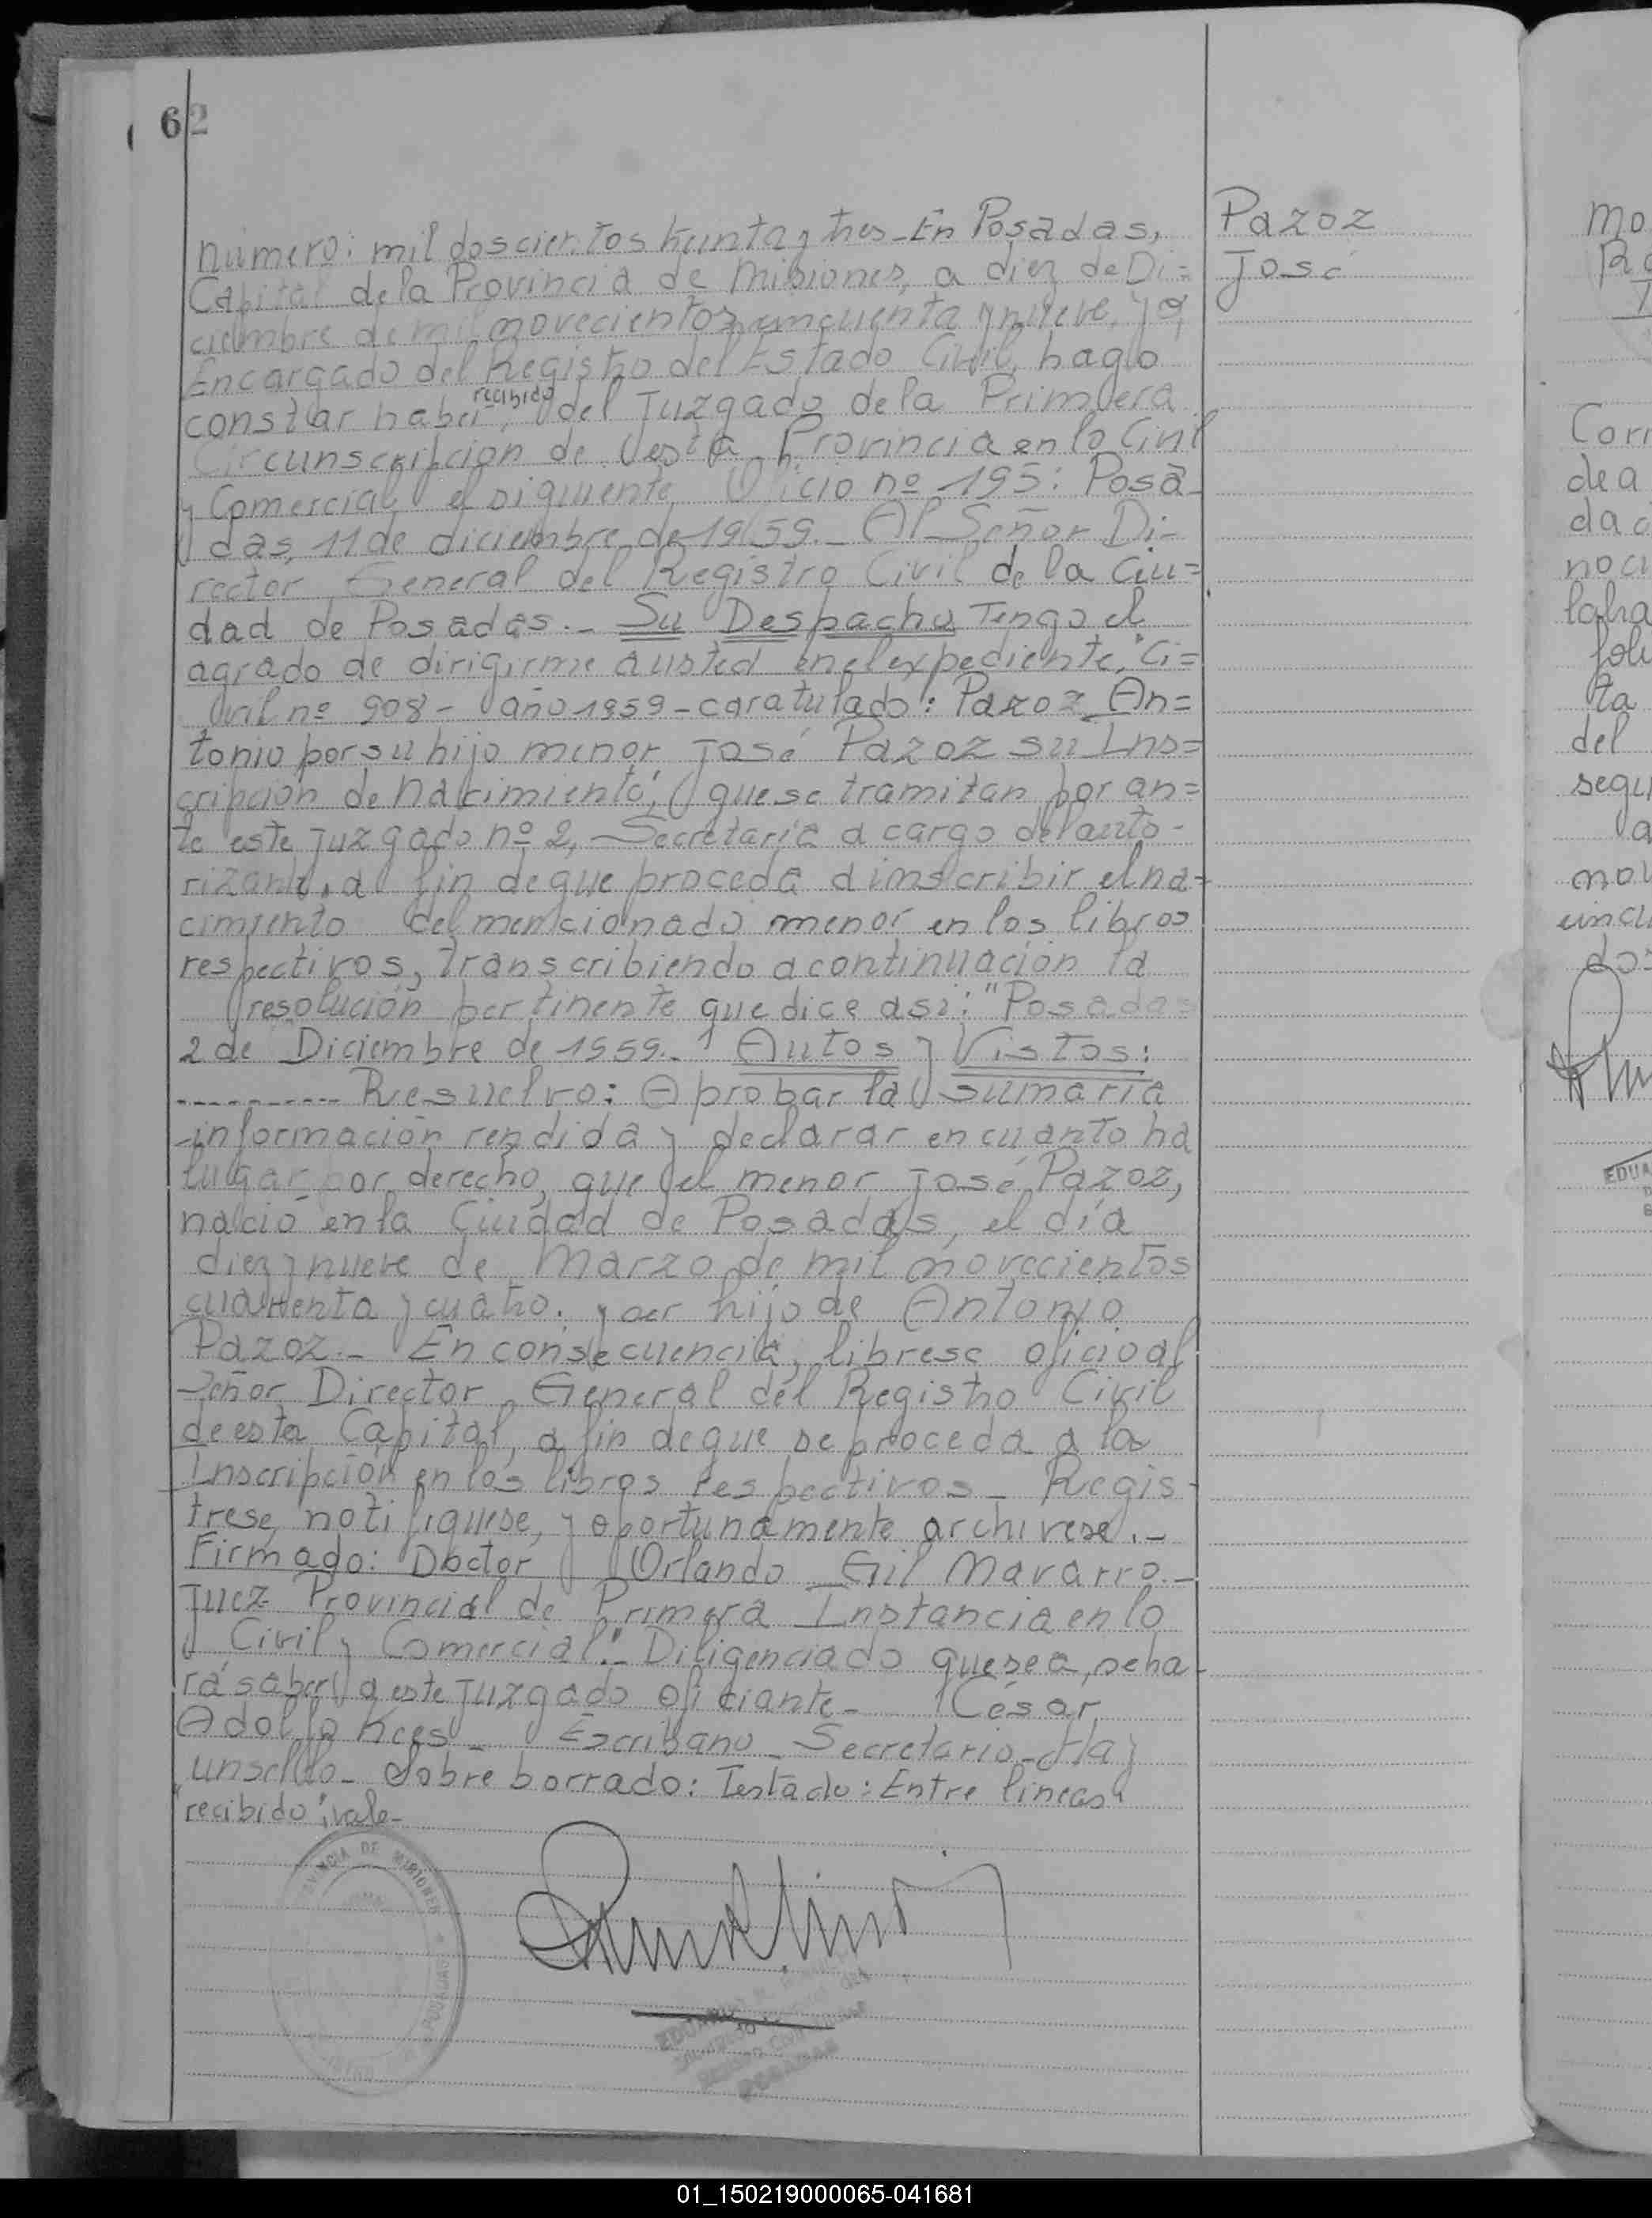 62
Pazoz
José
número: mil doscientos treinta y tres. En Posadas,
Capital de la Provincia de Misiones, a diez de Di=
ciembre de mil novecientos cincuenta y nueve, yo,
Encargado del Registro del Estado Civil, hago
recibido
constar haber, del Juzgado de la Primera
Circunscripcion de esta Provincia en lo Civil
y Comercial el siguiente Oficio nº 195: Posa-
das, 11 de diciembre de 1959.- Al Señor Di-
rector General del Registro Civil de la Ciu=
dad de Posadas.- Su Despacho Tengo el
agrado de dirigirme a usted en el expediente, "Ci=
vil nº 908 - año 1959 - caratulado: Pazoz An=
tonio por su hijo menor José Pazoz su Ins=
cripción de nacimiento", que se tramitan por an=
te este Juzgado nº 2, Secretaría a cargo del auto-
rizante, a fin de que proceda a inscribir el na-
cimiento del mencionado menor en los libros
respectivos, transcribiendo a continuación la
resolución pertinente que dice asi: "Posadas
2 de Diciembre de 1959.- Autos y Vistos:
---------- Resuelvo: Aprobar la sumaria
información rendida y declarar en cuanto ha
lugar por derecho, que el menor José Pazoz,
nació en la Ciudad de Posadas, el día
diez y nueve de Marzo de mil novecientos
cuarenta y cuatro. y ser hijo de Antonio
Pazoz.- En consecuencia, librese oficio al
Señor Director General del Registro Civil
de esta Capital, a fin de que se proceda a la
Inscripción en los libros respectivos - Regis-
trese, notifiquese, y oportunamente archivese.-
Firmado: Doctor Orlando Gil Navarro.-
Juez Provincial de Primera Instancia en lo
Civil y Comercial".- Diligenciado que sea, se ha-
rá saber a este Juzgado oficiante - César
Adolfo Kees - Escribano - Secretario - Hay
un sello - Sobre borrado: Testado: Entre lineas "
recibido"; vale -
PROVINCIA DE MISIONES
POSADAS
01_150219000065-041681